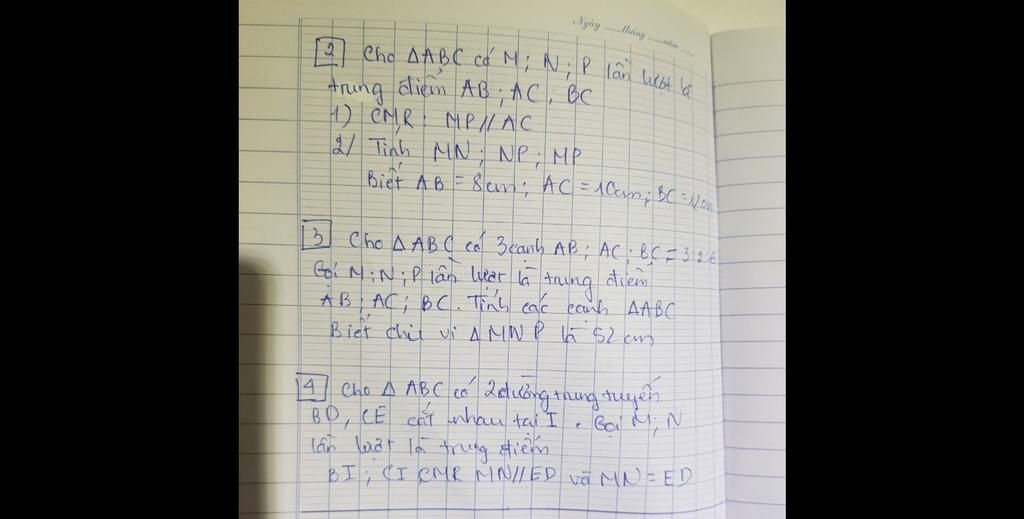 Ngày tháng năm
2 Cho ΔABC có M; N; P lần lượt là
trung điểm AB; AC; BC
1) CMR: MP//AC
2/ Tính MN; NP; MP
Biết AB = 8cm; AC = 10cm; BC = 12cm
3 Cho ΔABC có 3 cạnh AB; AC; BC = 3:2:
Gọi M; N; P lần lượt là trung điểm
AB; AC; BC. Tính các cạnh ΔABC
Biết chu vi ΔMNP là 52 cm
4 Cho Δ ABC có 2 đường trung tuyến
BD, CE cắt nhau tại I. Gọi M; N
lần lượt là trung điểm
BI; CI CMR MN//ED và MN = ED